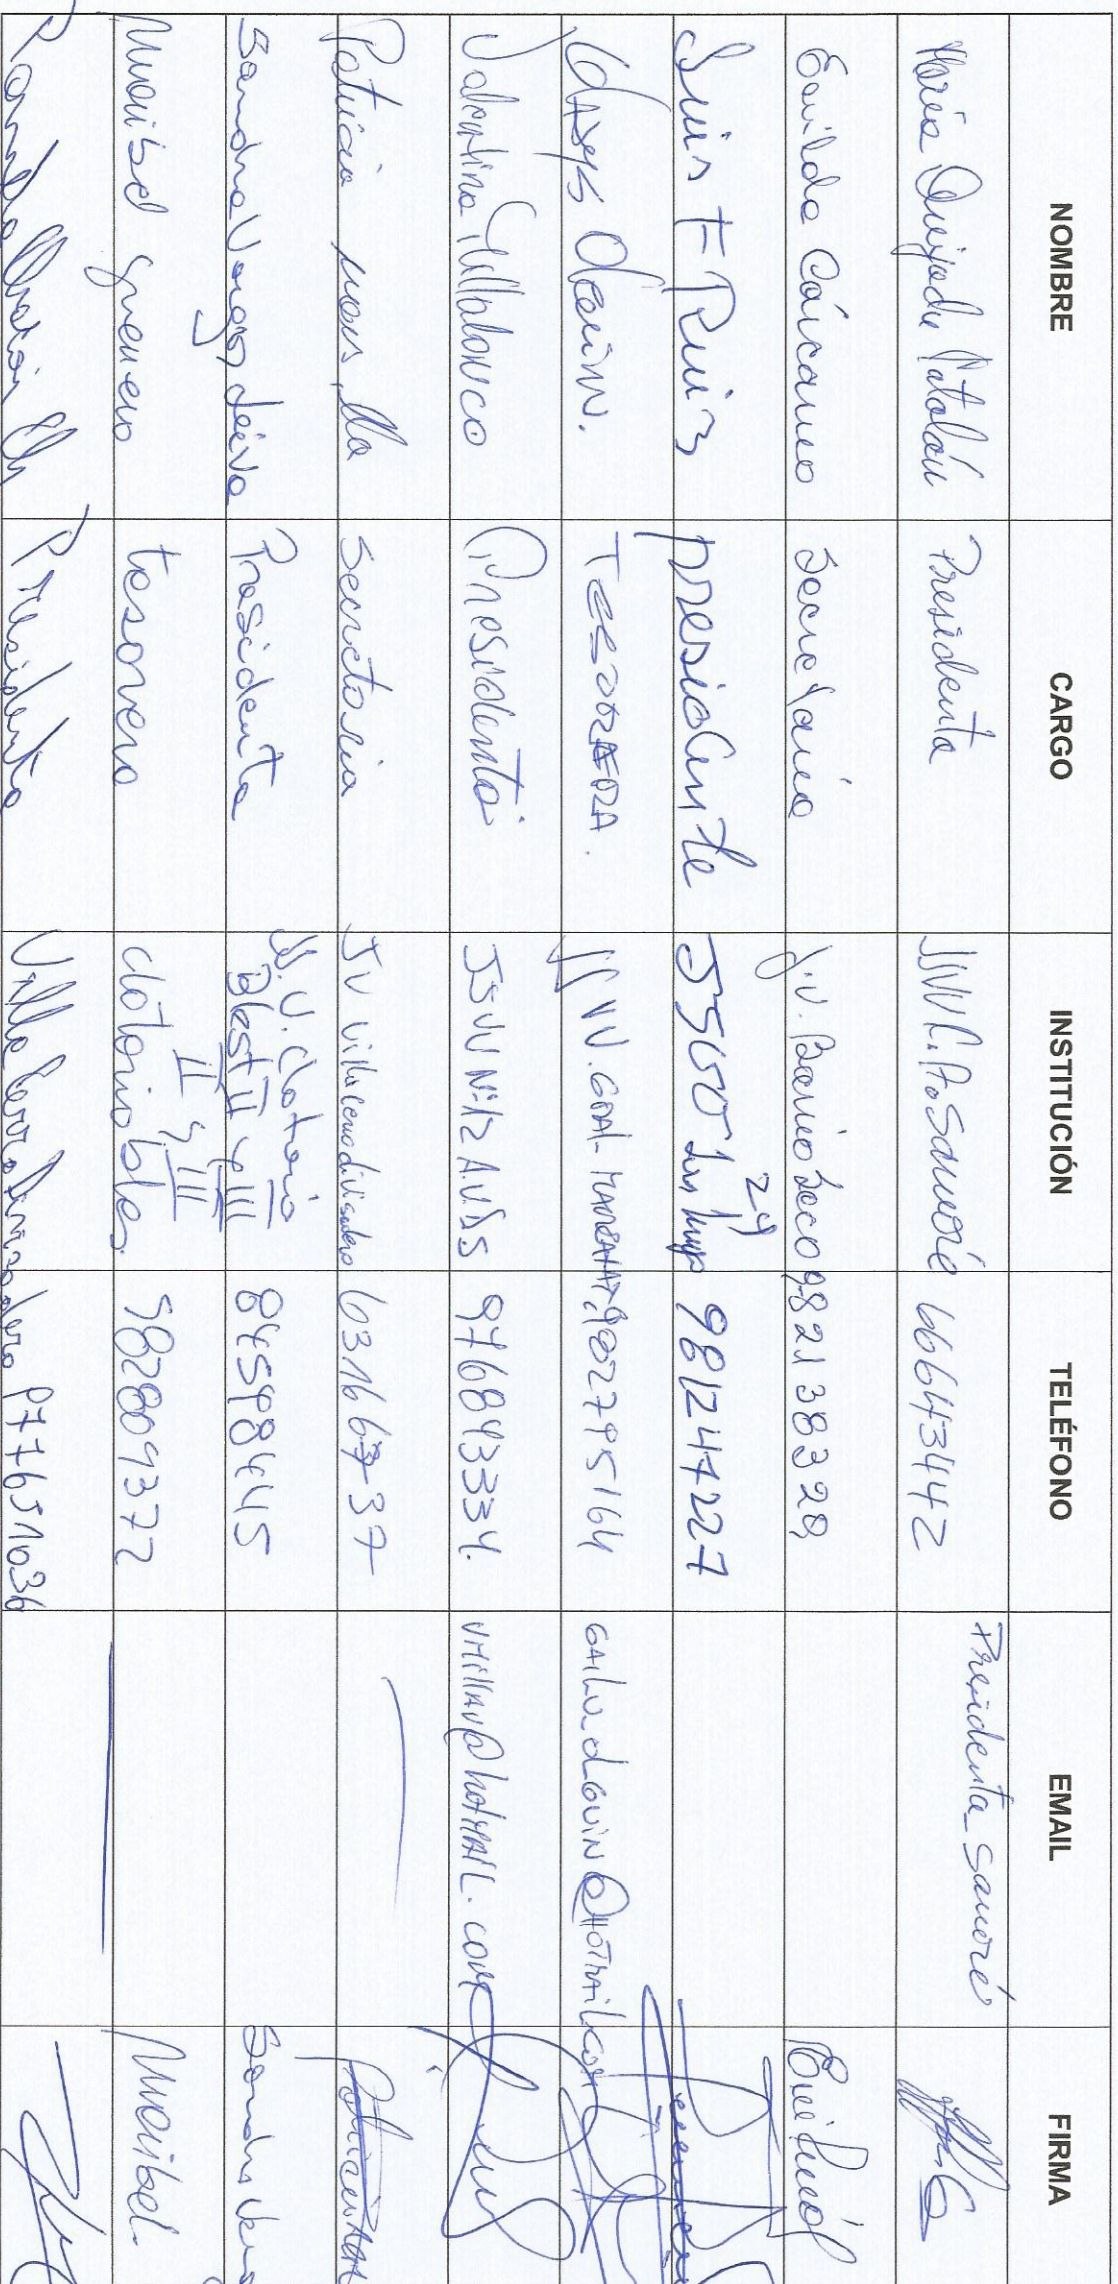 NOMBRE CARGO INSTITUCIÓN TELÉFONO EMAIL FIRMA
María Quijada Catalán Presidenta JJVV P. Pto. Samoré 66643442 Presidenta_Samoré
Eovilda Cárcamo Secretaria J.V. Barrio Seco 982138328
Luis F Ruiz presidente JJVV 24 San Luis 981244227
Gladys TESORERA. JJ VV. GRAL- 902795164
Valentina Millalonco Presidenta JJVV Nº12 A.V.S.S 976843334. VMILLAV@HOTMAIL.COM
Patricia secretaria JV Villa cerro divisadero 63166737
Sandra Vargas Leiva Presidenta J.V. Clotario Blest II y III 84598445 Sandra
Maribel Guerrero tesorera clotario bles II y III 982809372 Maribel.
Presidenta Villa Cerro Divisadero P77651036